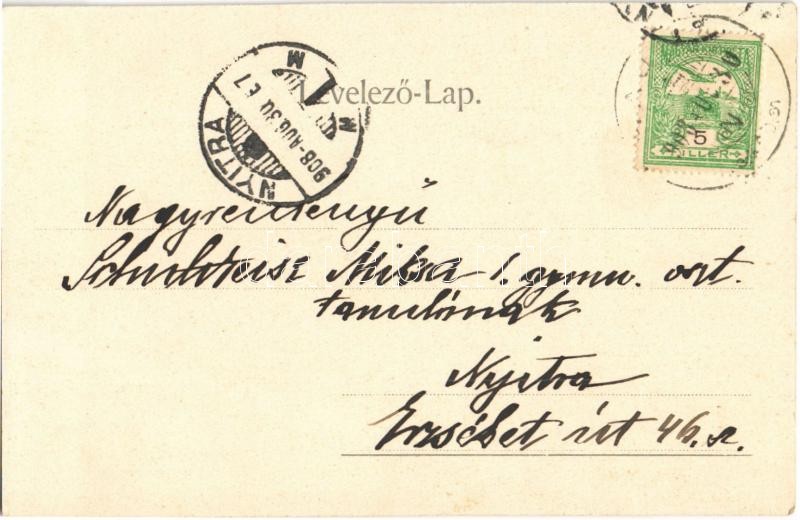 Levelező-Lap.
NYITRA
908 AUG. 30. E7
M
5
FILLER
Nagyreményű
Schuldheisz Miksa I. gymn. oszt.
tanulónak
Nyitra
Erzsébet út 46. sz.